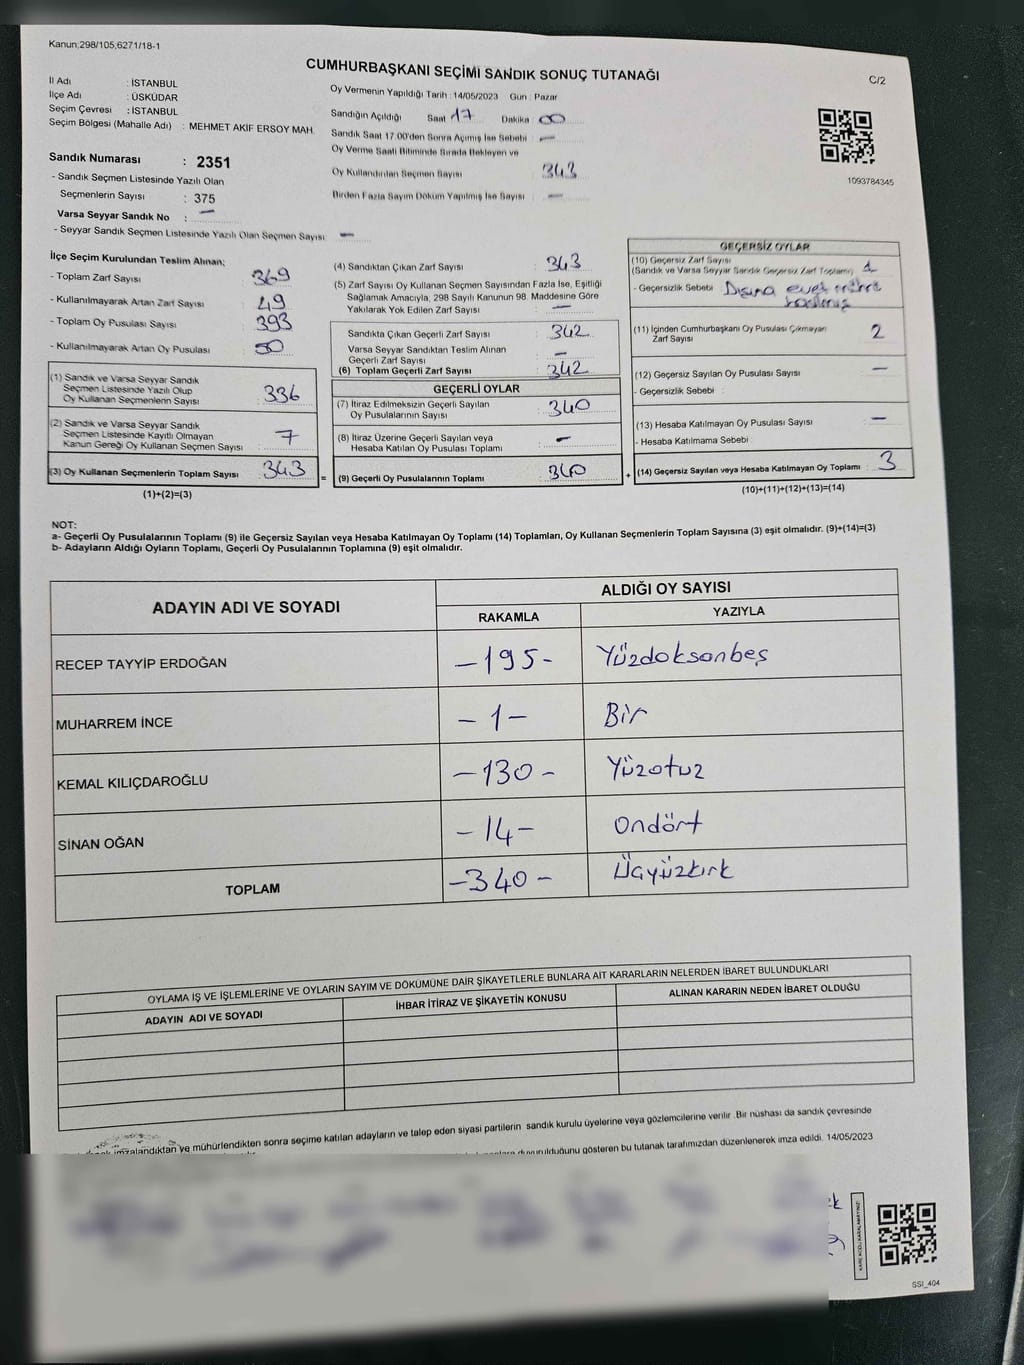 Kanun;298/105,6271/18-1
CUMHURBAŞKANI SEÇİMİ SANDIK SONUÇ TUTANAĞI
C/2
İl Adı : İSTANBUL
İlçe Adı : ÜSKÜDAR
Seçim Çevresi : İSTANBUL
Seçim Bölgesi (Mahalle Adı) : MEHMET AKİF ERSOY MAH.
Sandık Numarası : 2351
- Sandık Seçmen Listesinde Yazılı Olan
Seçmenlerin Sayısı : 375
Varsa Seyyar Sandık No : —
- Seyyar Sandık Seçmen Listesinde Yazılı Olan Seçmen Sayısı : —
Oy Vermenin Yapıldığı Tarih : 14/05/2023 Gün : Pazar
Sandığın Açıldığı Saat 17 Dakika 00
Sandık Saat 17.00'den Sonra Açımış İse Sebebi : —
Oy Verme Saati Bitiminde Sırada Bekleyen ve
Oy Kullandırılan Seçmen Sayısı 343
Birden Fazla Sayım Döküm Yapılmış İse Sayısı : —
1093784345
İlçe Seçim Kurulundan Teslim Alınan;
- Toplam Zarf Sayısı : 369
- Kullanılmayarak Artan Zarf Sayısı : 49
- Toplam Oy Pusulası Sayısı : 393
- Kullanılmayarak Artan Oy Pusulası : 50
(1) Sandık ve Varsa Seyyar Sandık
Seçmen Listesinde Yazılı Olup
Oy Kullanan Seçmenlerin Sayısı : 336
(2) Sandık ve Varsa Seyyar Sandık
Seçmen Listesinde Kayıtlı Olmayan
Kanun Gereği Oy Kullanan Seçmen Sayısı : 7
(3) Oy Kullanan Seçmenlerin Toplam Sayısı : 343
(1)+(2)=(3)
(4) Sandıktan Çıkan Zarf Sayısı : 343
(5) Zarf Sayısı Oy Kullanan Seçmen Sayısından Fazla İse, Eşitliği
Sağlamak Amacıyla; 298 Sayılı Kanunun 98. Maddesine Göre
Yakılarak Yok Edilen Zarf Sayısı : —
Sandıkta Çıkan Geçerli Zarf Sayısı : 342
Varsa Seyyar Sandıktan Teslim Alınan
Geçerli Zarf Sayısı : —
(6) Toplam Geçerli Zarf Sayısı : 342
GEÇERLİ OYLAR
(7) İtiraz Edilmeksizin Geçerli Sayılan
Oy Pusulalarının Sayısı : 340
(8) İtiraz Üzerine Geçerli Sayılan veya
Hesaba Katılan Oy Pusulası Toplamı : —
= (9) Geçerli Oy Pusulalarının Toplamı : 340
GEÇERSİZ OYLAR
(10) Geçersiz Zarf Sayısı
(Sandık ve Varsa Seyyar Sandık Geçersiz Zarf Toplamı) : 1
- Geçersizlik Sebebi : Dışına evet mührü
(11) İçinden Cumhurbaşkanı Oy Pusulası Çıkmayan
Zarf Sayısı : 2
(12) Geçersiz Sayılan Oy Pusulası Sayısı : —
- Geçersizlik Sebebi :
(13) Hesaba Katılmayan Oy Pusulası Sayısı : —
- Hesaba Katılmama Sebebi
+ (14) Geçersiz Sayılan veya Hesaba Katılmayan Oy Toplamı : 3
(10)+(11)+(12)+(13)=(14)
NOT:
a- Geçerli Oy Pusulalarının Toplamı (9) ile Geçersiz Sayılan veya Hesaba Katılmayan Oy Toplamı (14) Toplamları, Oy Kullanan Seçmenlerin Toplam Sayısına (3) eşit olmalıdır. (9)+(14)=(3)
b- Adayların Aldığı Oyların Toplamı, Geçerli Oy Pusulalarının Toplamına (9) eşit olmalıdır.
ADAYIN ADI VE SOYADI
ALDIĞI OY SAYISI
RAKAMLA YAZIYLA
RECEP TAYYİP ERDOĞAN -195- Yüzdoksanbeş
MUHARREM İNCE -1- Bir
KEMAL KILIÇDAROĞLU -130- Yüzotuz
SİNAN OĞAN -14- Ondört
TOPLAM -340- Üçyüzkırk
OYLAMA İŞ VE İŞLEMLERİNE VE OYLARIN SAYIM VE DÖKÜMÜNE DAİR ŞİKAYETLERLE BUNLARA AİT KARARLARIN NELERDEN İBARET BULUNDUKLARI
ADAYIN ADI VE SOYADI İHBAR İTİRAZ VE ŞİKAYETİN KONUSU ALINAN KARARIN NEDEN İBARET OLDUĞU
imzalandıktan ve mühürlendikten sonra seçime katılan adayların ve talep eden siyasi partilerin sandık kurulu üyelerine veya gözlemcilerine verilir .Bir nüshası da sandık çevresinde
duyurulduğunu gösteren bu tutanak tarafımızdan düzenlenerek imza edildi. 14/05/2023
KARE KODU KARALAMAYINIZ!
SSI_404